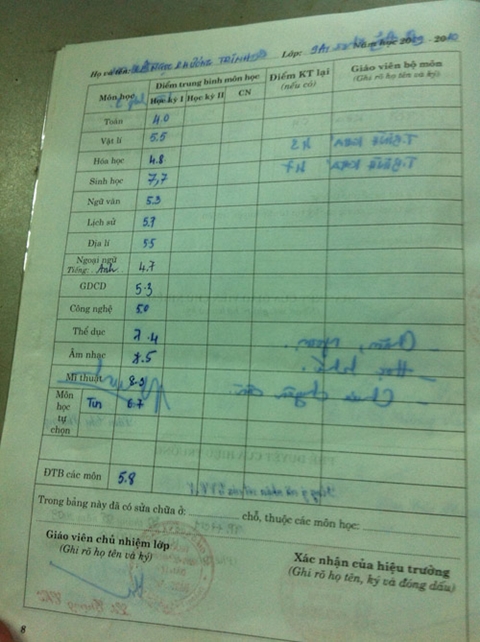 Họ và tên: Lớp: 9A1 Năm học 20 - 2010
Môn học Điểm trung bình môn học Điểm KT lại (nếu có) Giáo viên bộ môn (Ghi rõ họ tên và ký)
Học kỳ I Học kỳ II CN
Toán 4.0
Vật lí 5.5
Hóa học 4.8
Sinh học 7,7
Ngữ văn 5.3
Lịch sử 5.7
Địa lí 5.5
Ngoại ngữ
Tiếng: Anh 4.7
GDCD 5.3
Công nghệ 5.0
Thể dục 7.4
Âm nhạc 7.5
Mĩ thuật
Môn học tự chọn Tin 6.7
ĐTB các môn 5.8
Trong bảng này đã có sửa chữa ở: chỗ, thuộc các môn học:
Giáo viên chủ nhiệm lớp
(Ghi rõ họ tên và ký)
Xác nhận của hiệu trưởng
(Ghi rõ họ tên, ký và đóng dấu)
8